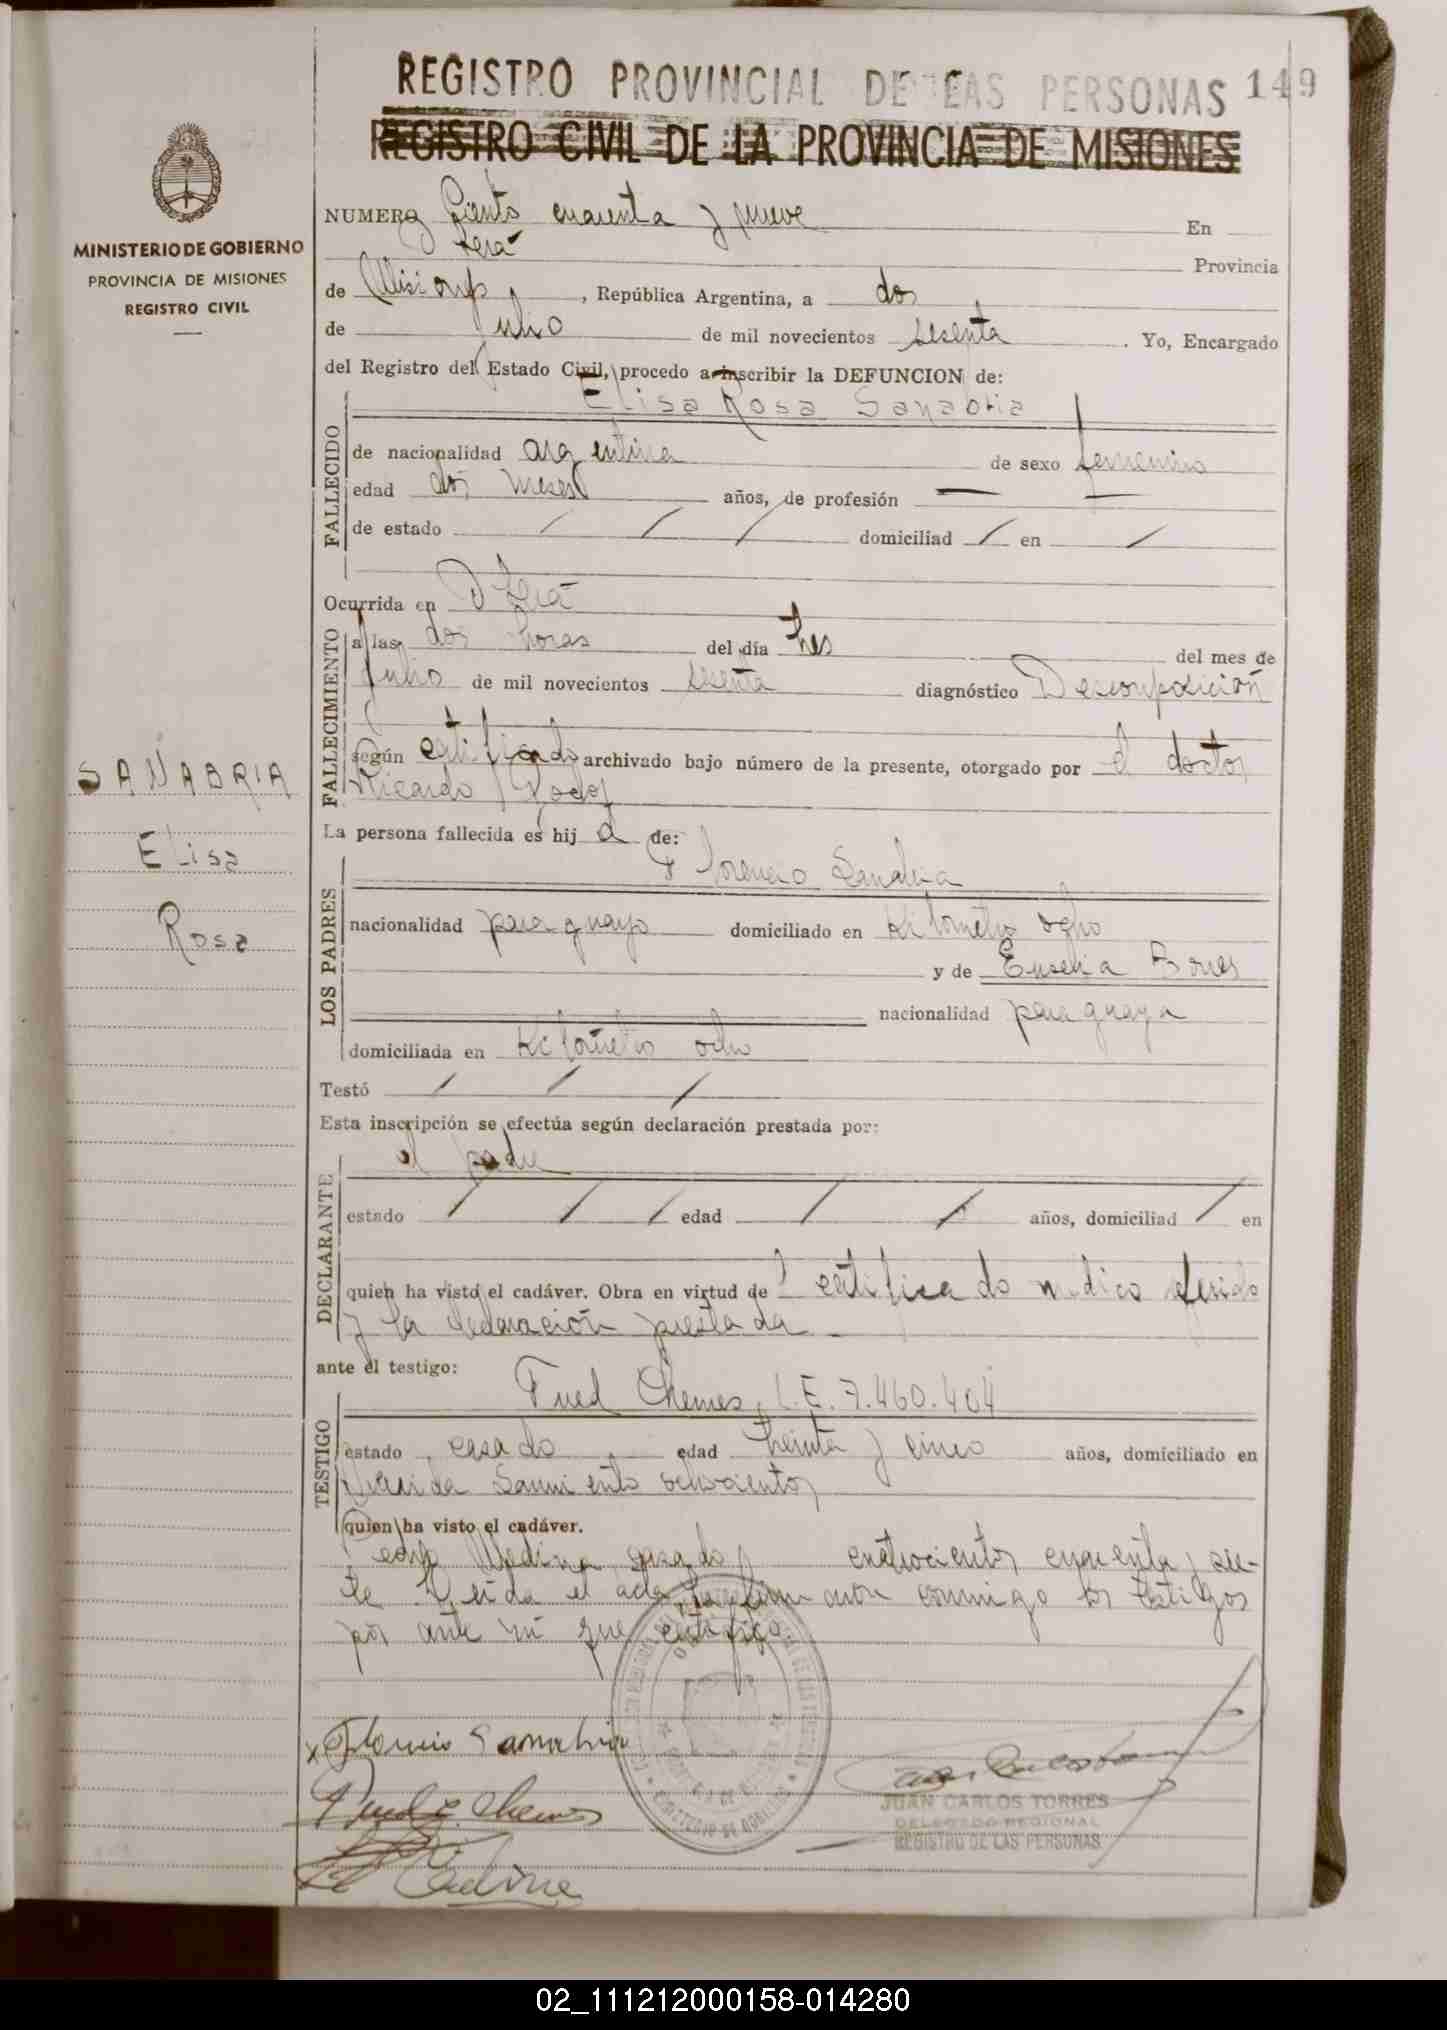 REGISTRO PROVINCIAL DE LAS PERSONAS 149
REGISTRO CIVIL DE LA PROVINCIA DE MISIONES
MINISTERIO DE GOBIERNO
PROVINCIA DE MISIONES
REGISTRO CIVIL
SANABRIA
Elisa
Rosa
NUMERO Ciento cuarenta y nueve En
Oberá Provincia
de Misiones, República Argentina, a dos
de Julio de mil novecientos sesenta. Yo, Encargado
del Registro del Estado Civil, procedo a inscribir la DEFUNCION de:
Elisa Rosa Sanabria
FALLECIDO
de nacionalidad argentina de sexo femenino
edad dos meses años, de profesión —
de estado / / / domiciliad / en /
Ocurrida en Oberá
FALLECIMIENTO
a las dos horas del día tres del mes de
Julio de mil novecientos sesenta diagnóstico Descomposición
según certificado archivado bajo número de la presente, otorgado por el doctor
Ricardo
La persona fallecida es hij a de:
LOS PADRES
Florencio Sanabria
nacionalidad paraguayo domiciliado en Kilometro ocho
y de Eusebia
nacionalidad paraguaya
domiciliada en Kilometro ocho
Testó / / /
Esta inscripción se efectúa según declaración prestada por:
DECLARANTE
el padre
estado / / / edad / / años, domiciliad / en
quien ha visto el cadáver. Obra en virtud del certificado medico referido
y la declaración prestada
ante el testigo:
TESTIGO
Fued Chemes, L.E. 7.460.404
estado casado edad treinta y cinco años, domiciliado en
Avenida Sarmiento ochocientos
quien ha visto el cadáver.
Medina casado cuatrocientos cincuenta y sie-
te Leida el acta la firmaron conmigo los testigos
por ante mi que certifico
x Florencio Sanabria
Fued Chemes
JUAN CARLOS TORRES
DELEGADO REGIONAL
REGISTRO DE LAS PERSONAS
02_111212000158-014280